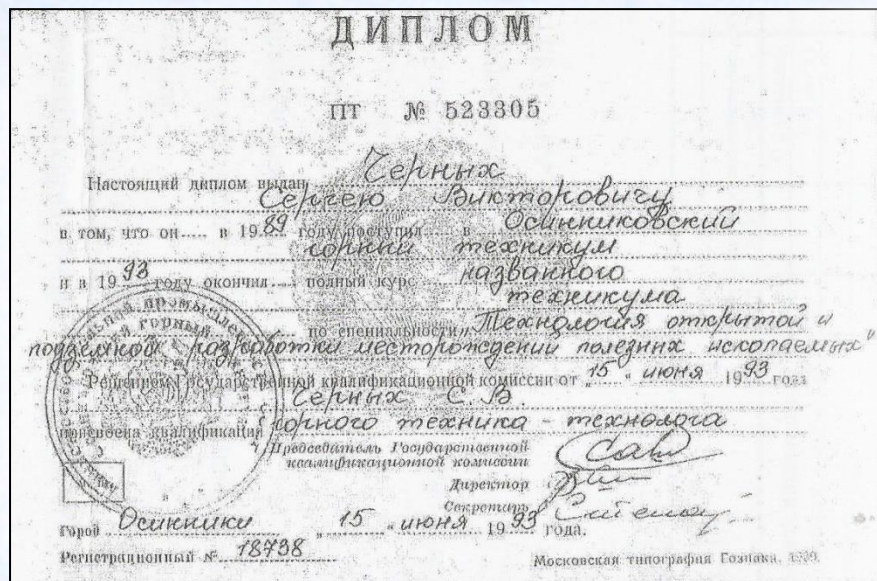 ДИПЛОМ
ПТ № 523305
Настоящий диплом выдан Черных
Сергею Викторовичу
в том, что он.... в 1989 году поступил.... в Осинниковский
горный техникум
и в 1993 году окончил.... полный курс названного
техникума
по специальности „Технология открытой и
подземной разработки месторождений полезных ископаемых"
Решением Государственной квалификационной комиссии от „15" июня 1993 года
Черных С. В.
присвоена квалификация горного техника - технолога
Председатель Государственной
квалификационной комиссии
Директор
Секретарь
Город Осинники „15" июня 1993 года.
Регистрационный № 18738
Московская типография Гознака.